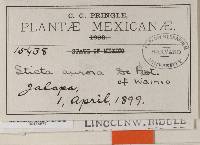 C. G. PRINGLE
PLANTÆ MEXICANÆ.
1898.
15438
STATE OF MEXICO
HARVARD
Sticta aurora De Not.
of Wainio
Jalapa,
1, April, 1899.
LINCOLN W. RIDDLE